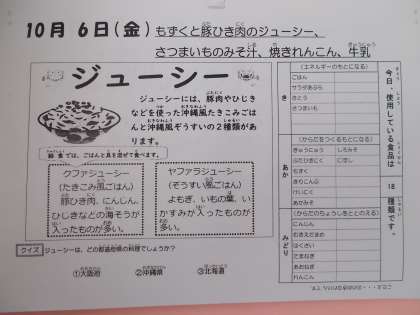 10月 6日(金) もずくと豚ひき肉のジューシー、
さつまいものみそ汁、焼きれんこん、牛乳
ジューシー
ジューシーには、豚肉やひじき
などを使った沖縄風たきこみごは
んと沖縄風ぞうすいの2種類があ
ります。
給食では、ごはんと具を混ぜて食べます。
クファジューシー
(たきこみ風ごはん)
豚ひき肉、にんじん、
ひじきなどの海そうが
入ったものが多い。
ヤファラジューシー
(ぞうすい風ごはん)
よもぎ、いもの葉、い
かすみが入ったものが
多い。
クイズ ジューシーは、どの都道府県の料理でしょうか?
①大阪府 ②沖縄県 ③北海道
今日、使用している食品は
18
種類です。
き
(エネルギーのもとになる)
ごはん
サラダあぶら
さとう
さつまいも
あか
(からだをつくるもとになる)
ぎゅうにゅう しろみそ
ぶたひきにく にぼし
もずく
きりこんぶ
けいにく
あかみそ
みどり
(からだのちょうしをととのえる)
にんじん
むきえだまめ
はくさい
たまねぎ
あおねぎ
れんこん